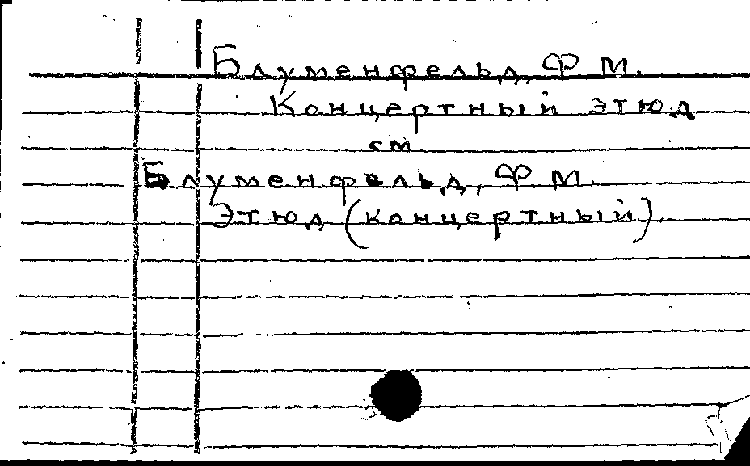 Блуменфельд, Ф. М.
Концертный этюд
см.
Блуменфельд, Ф. М.
Этюд (концертный).